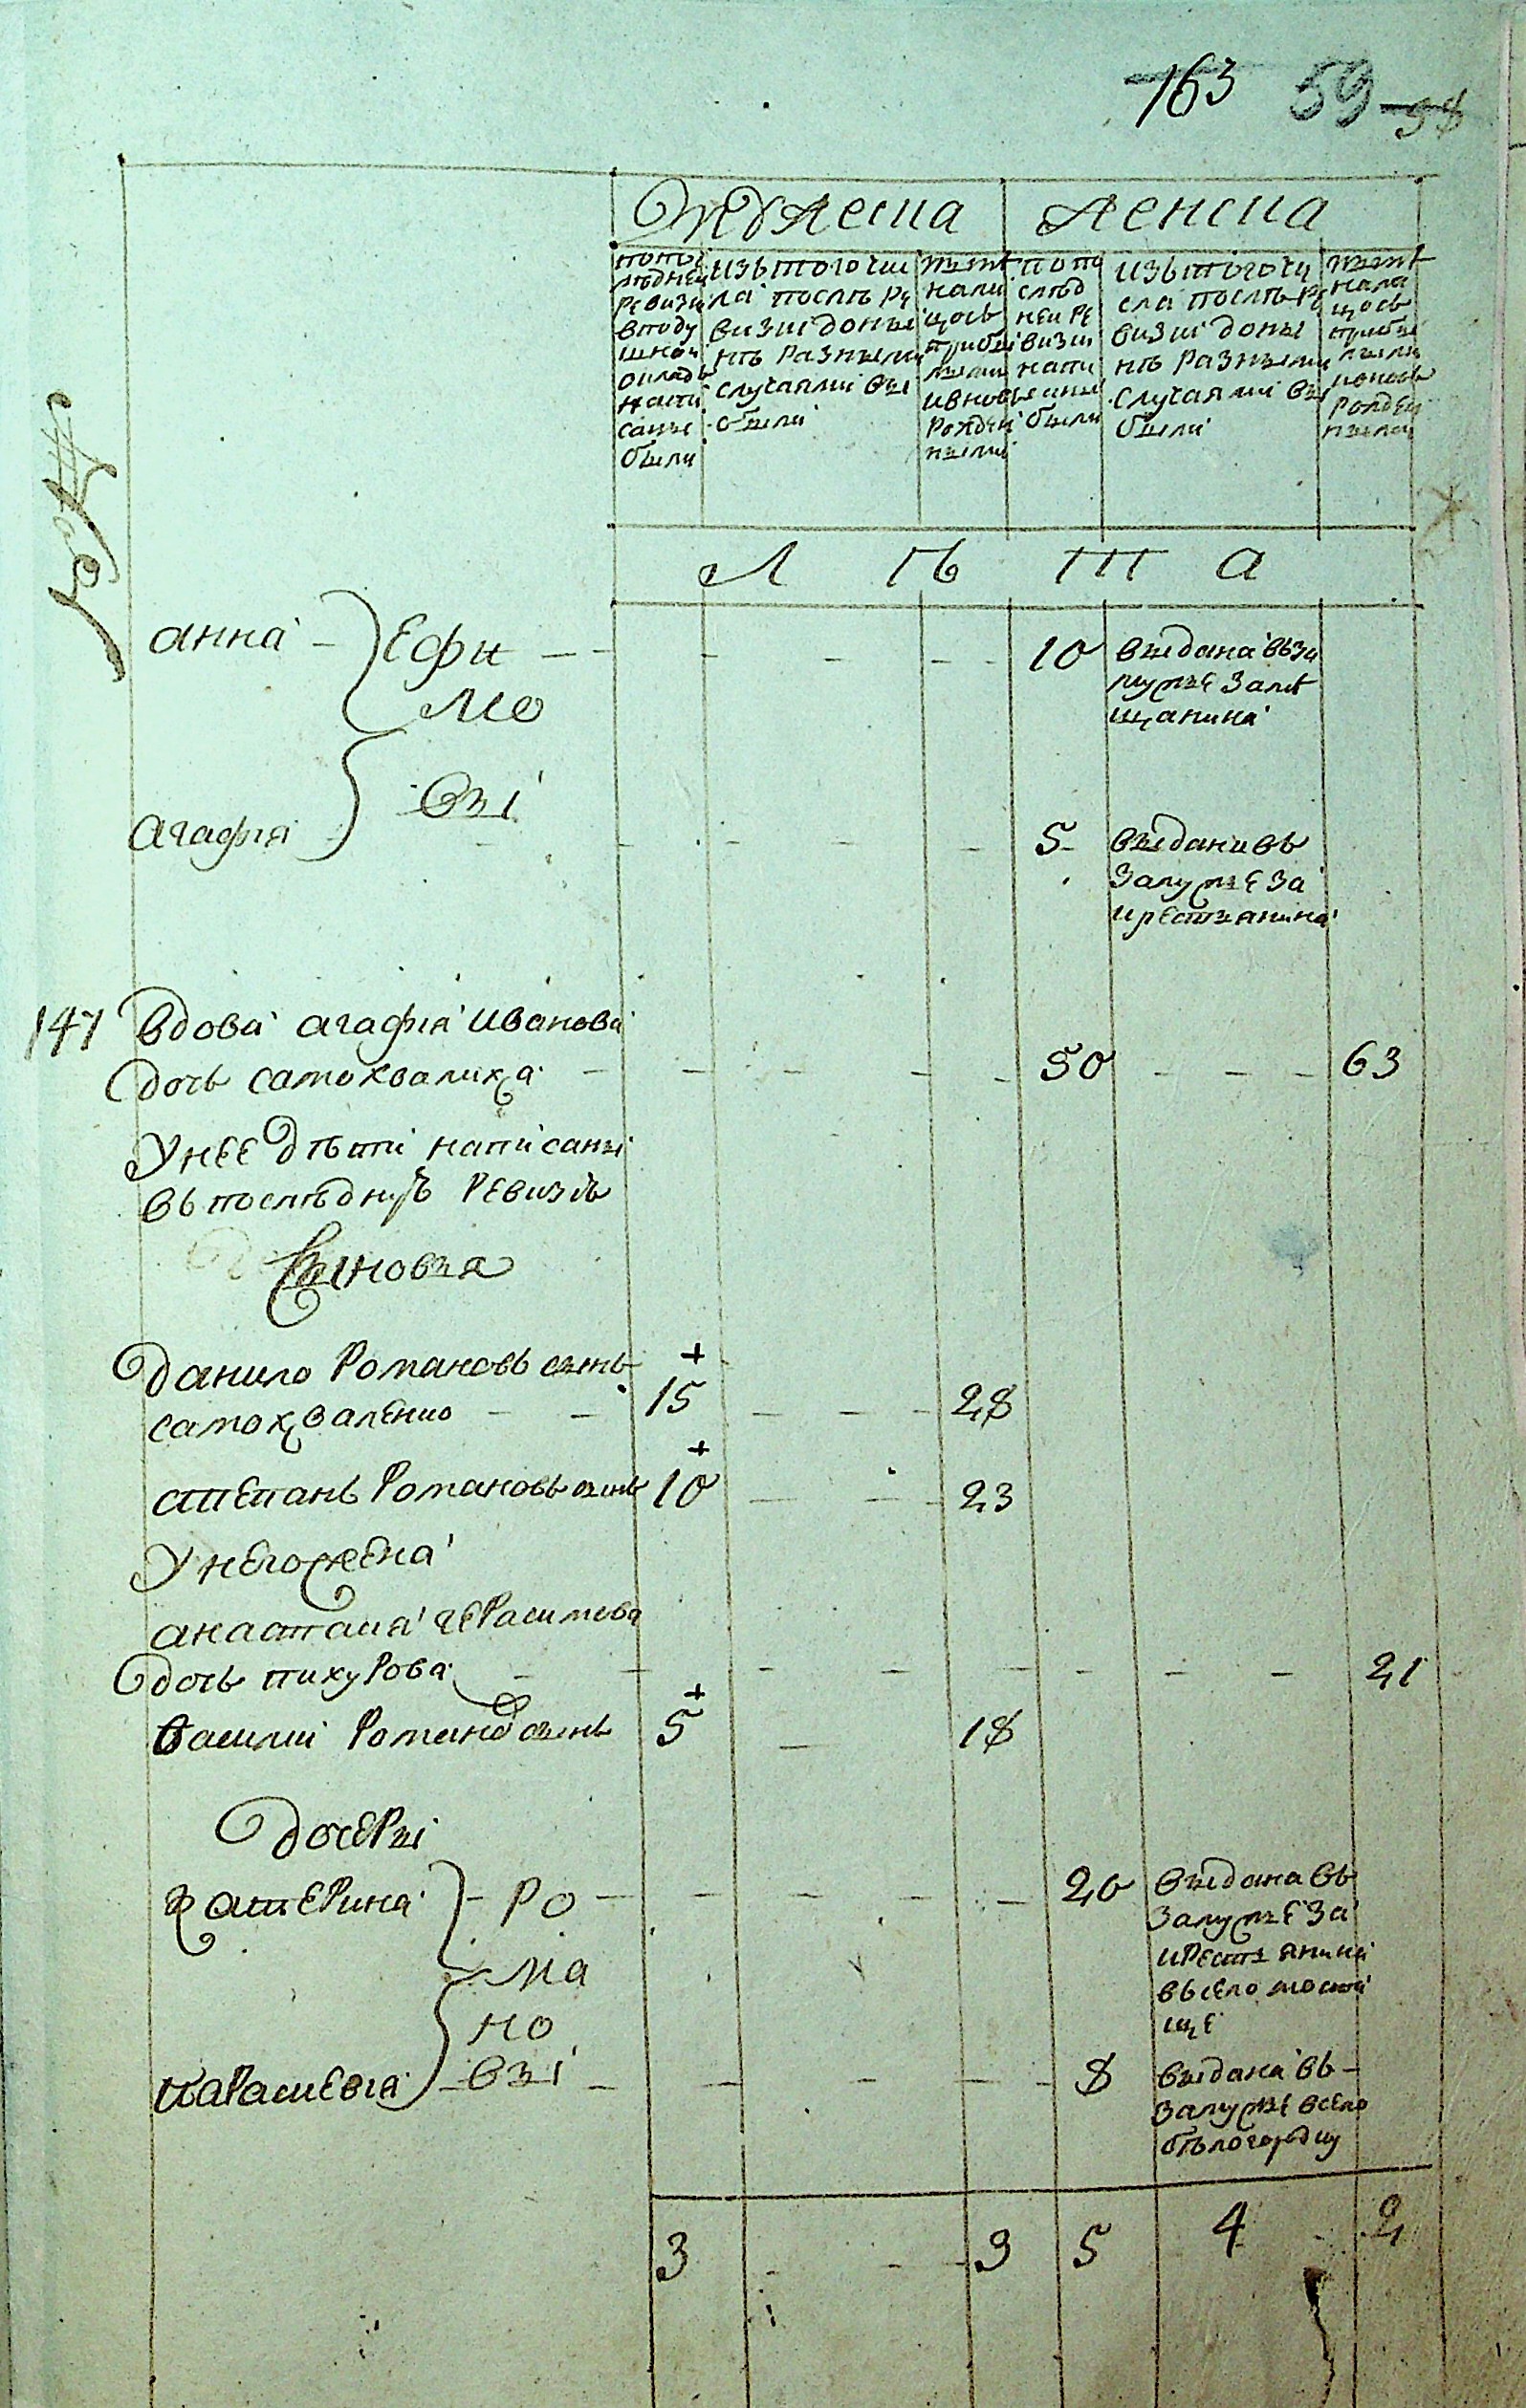 163 59 98
Мужеска женска
попос
лѣдней
ревизи
вподу
шном
окладѣ
напи
саны
были
изътогочис
ла послѣ ре
визіи доны
нѣ разными
случаями вы
были
ныне
нали
цось
прибы
лыми
ивновь
рожден
ными
попо
слѣд
ней ре
визіи
напи
саны
были
изътогочи
сла послѣ ре
визіи доны
нѣ разными
случаями вы
были
ныне
нали
цось
прибы
лыми
ивновь
рожден
ными
Л ѣ т а
анна Ефи 10 выдана взa
мо мужъ замѣ
щанина
вы
агафія 5 выдани въ
замужъ за
крестьянина
147 вдова агафія Иванова
дочь самохвалиха 50 63
Унее дѣти написаны
въ послѣднуѣ ревизіѣ
Сыновья
данило Романовъ сынъ +
самохваленко 15 28
степанъ Романовъ сынъ + 10 23
Унего жена
анастасия герасимова
дочь пихурова 21
василий Романо сынъ + 5 18
дочери
катерина Ро 20 выдана въ
замужъ за
ма крестьянина
въ село мости
но ще
параскевия вы 8 выдана въ
замужъ всело
бѣлогородку
3 3 5 4 2